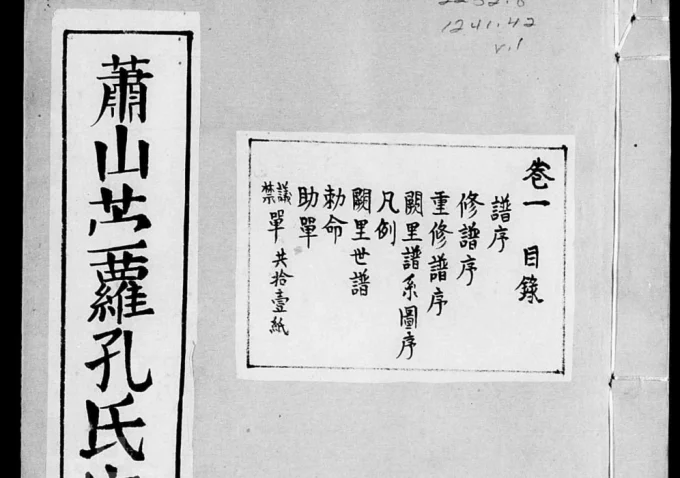 2252.8
1241.42
v.1
卷一 目錄
譜序
修譜序
重修譜序
闕里譜系圖序
凡例
闕里世譜
勅命
助單
議禁單 共拾壹紙
蕭山苎蘿孔氏